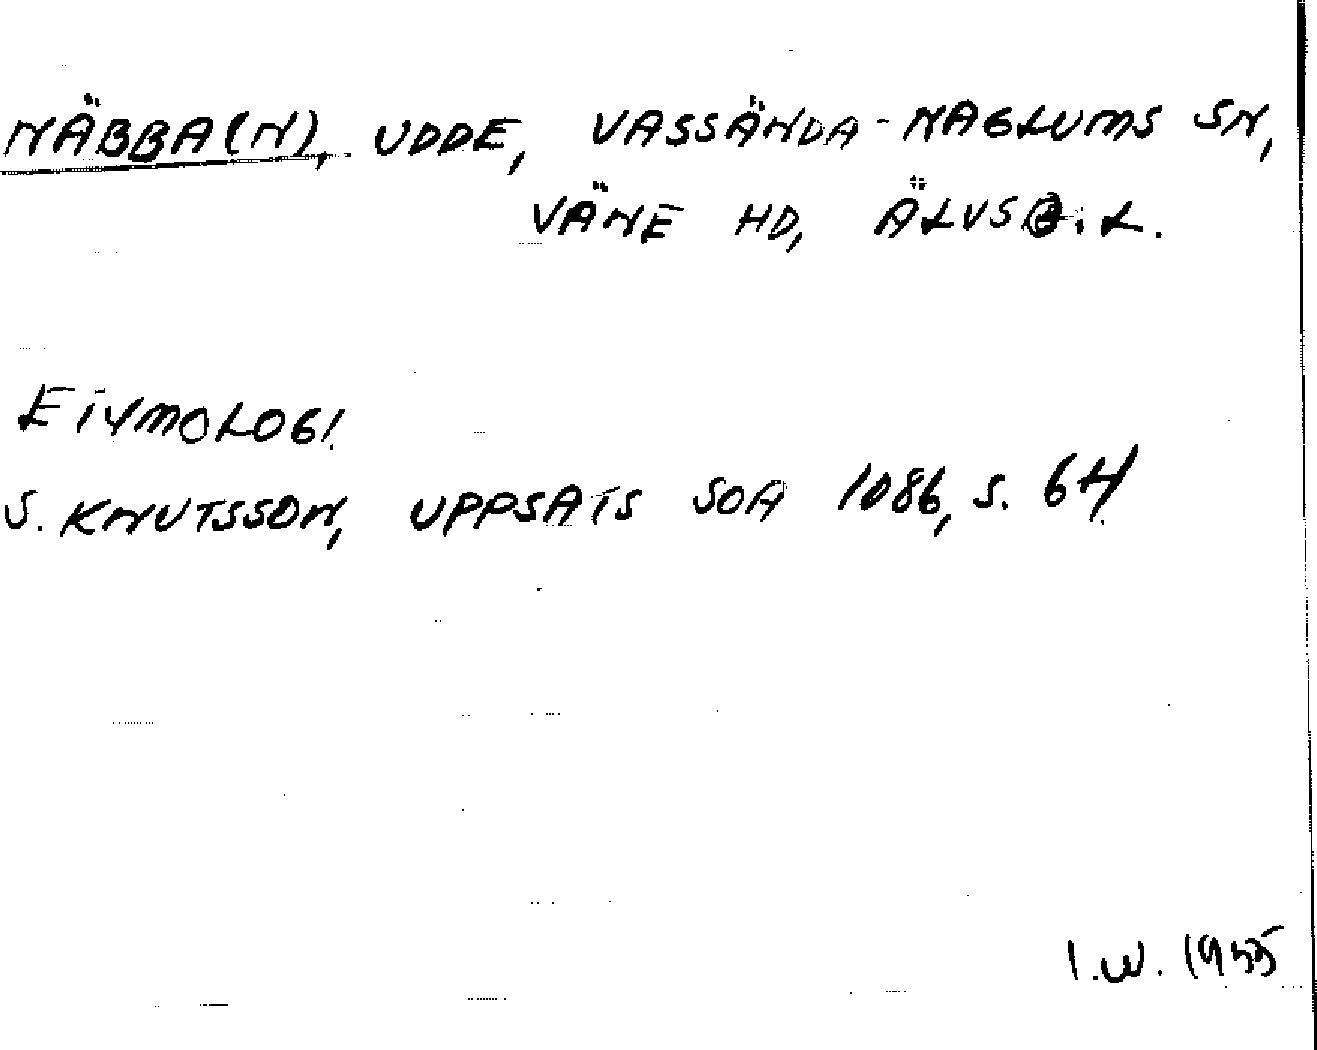 NÄBBA(N), UDDE, VASSÄNDA-NAGLUMS SN,
VÄNE HD, ÄLVSB. L.
ETYMOLOGI
S. KNUTSSON, UPPSATS SOA 1086, S. 64
I.W. 1955